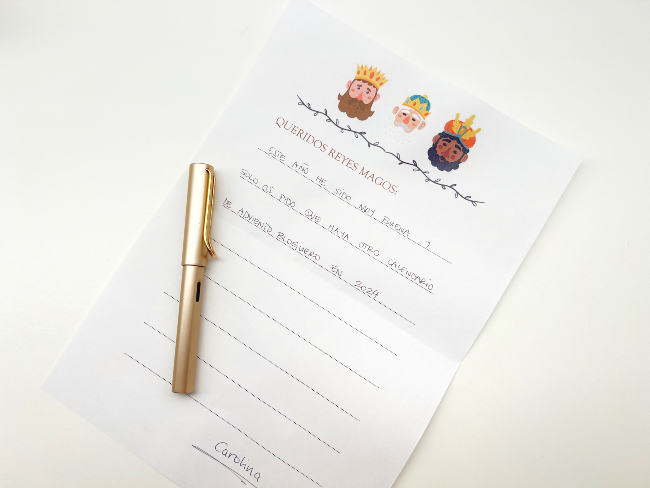 QUERIDOS REYES MAGOS:
ESTE AÑO HE SIDO MUY BUENA Y
SOLO OS PIDO QUE HAYA OTRO CALENDARIO
DE ADVIENTO BLOGUERO EN 2024
Carolina